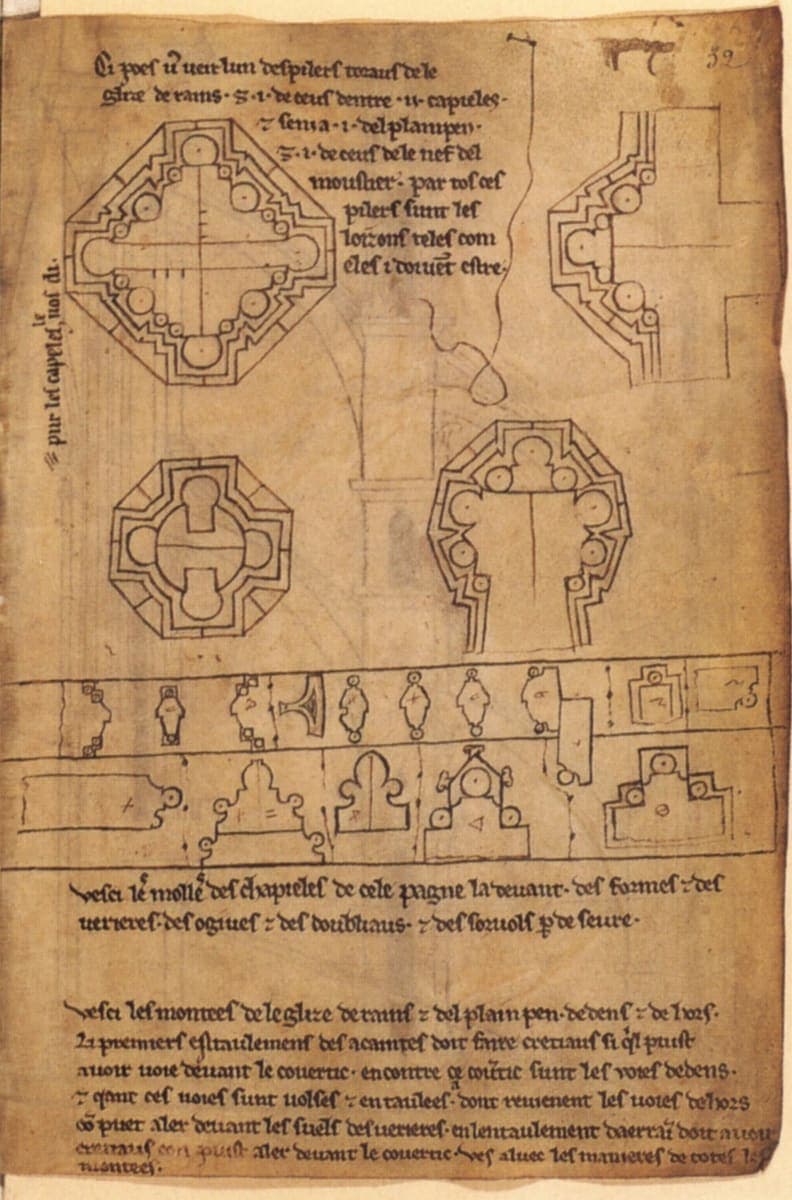 32
Ci poes u̅ veir lun des pilers toraus de le
glize de rains · ⁊ · i · de ceus dentre · ii · capieles ·
⁊ sen i a · i · del plain pen ·
⁊ · i · de ceus de le nef del
moustier · par tos ces
pilers sunt les
loizons teles com
eles i doiuēt estre ·
pur les capeles, le uos di ·
Vesci les molles des chapieles de cele pagne la deuant · des formes ⁊ des
uerieres · des ogiues ⁊ des doubliaus · ⁊ des soruols ꝑ de seure ·
Vesci les montees de le glize de rains ⁊ del plain pen · dedens ⁊ de hors ·
Li premiers estaulemens des acaintes doit faire cretiaus si q̃l puist
auoir uoie deuant le couertic · encontre ce couertic sunt les uoies dedens ·
⁊ qant ces uoies sunt uolses ⁊ entaulees · adont reuienent les uoies dehors
cō puet aler deuant les suels des uerieres · en lentaulement daerrai̅ doit auoir
cretiaus con puist aler deuant le couertic · Ves aluec les manieres de totes les
montees ·